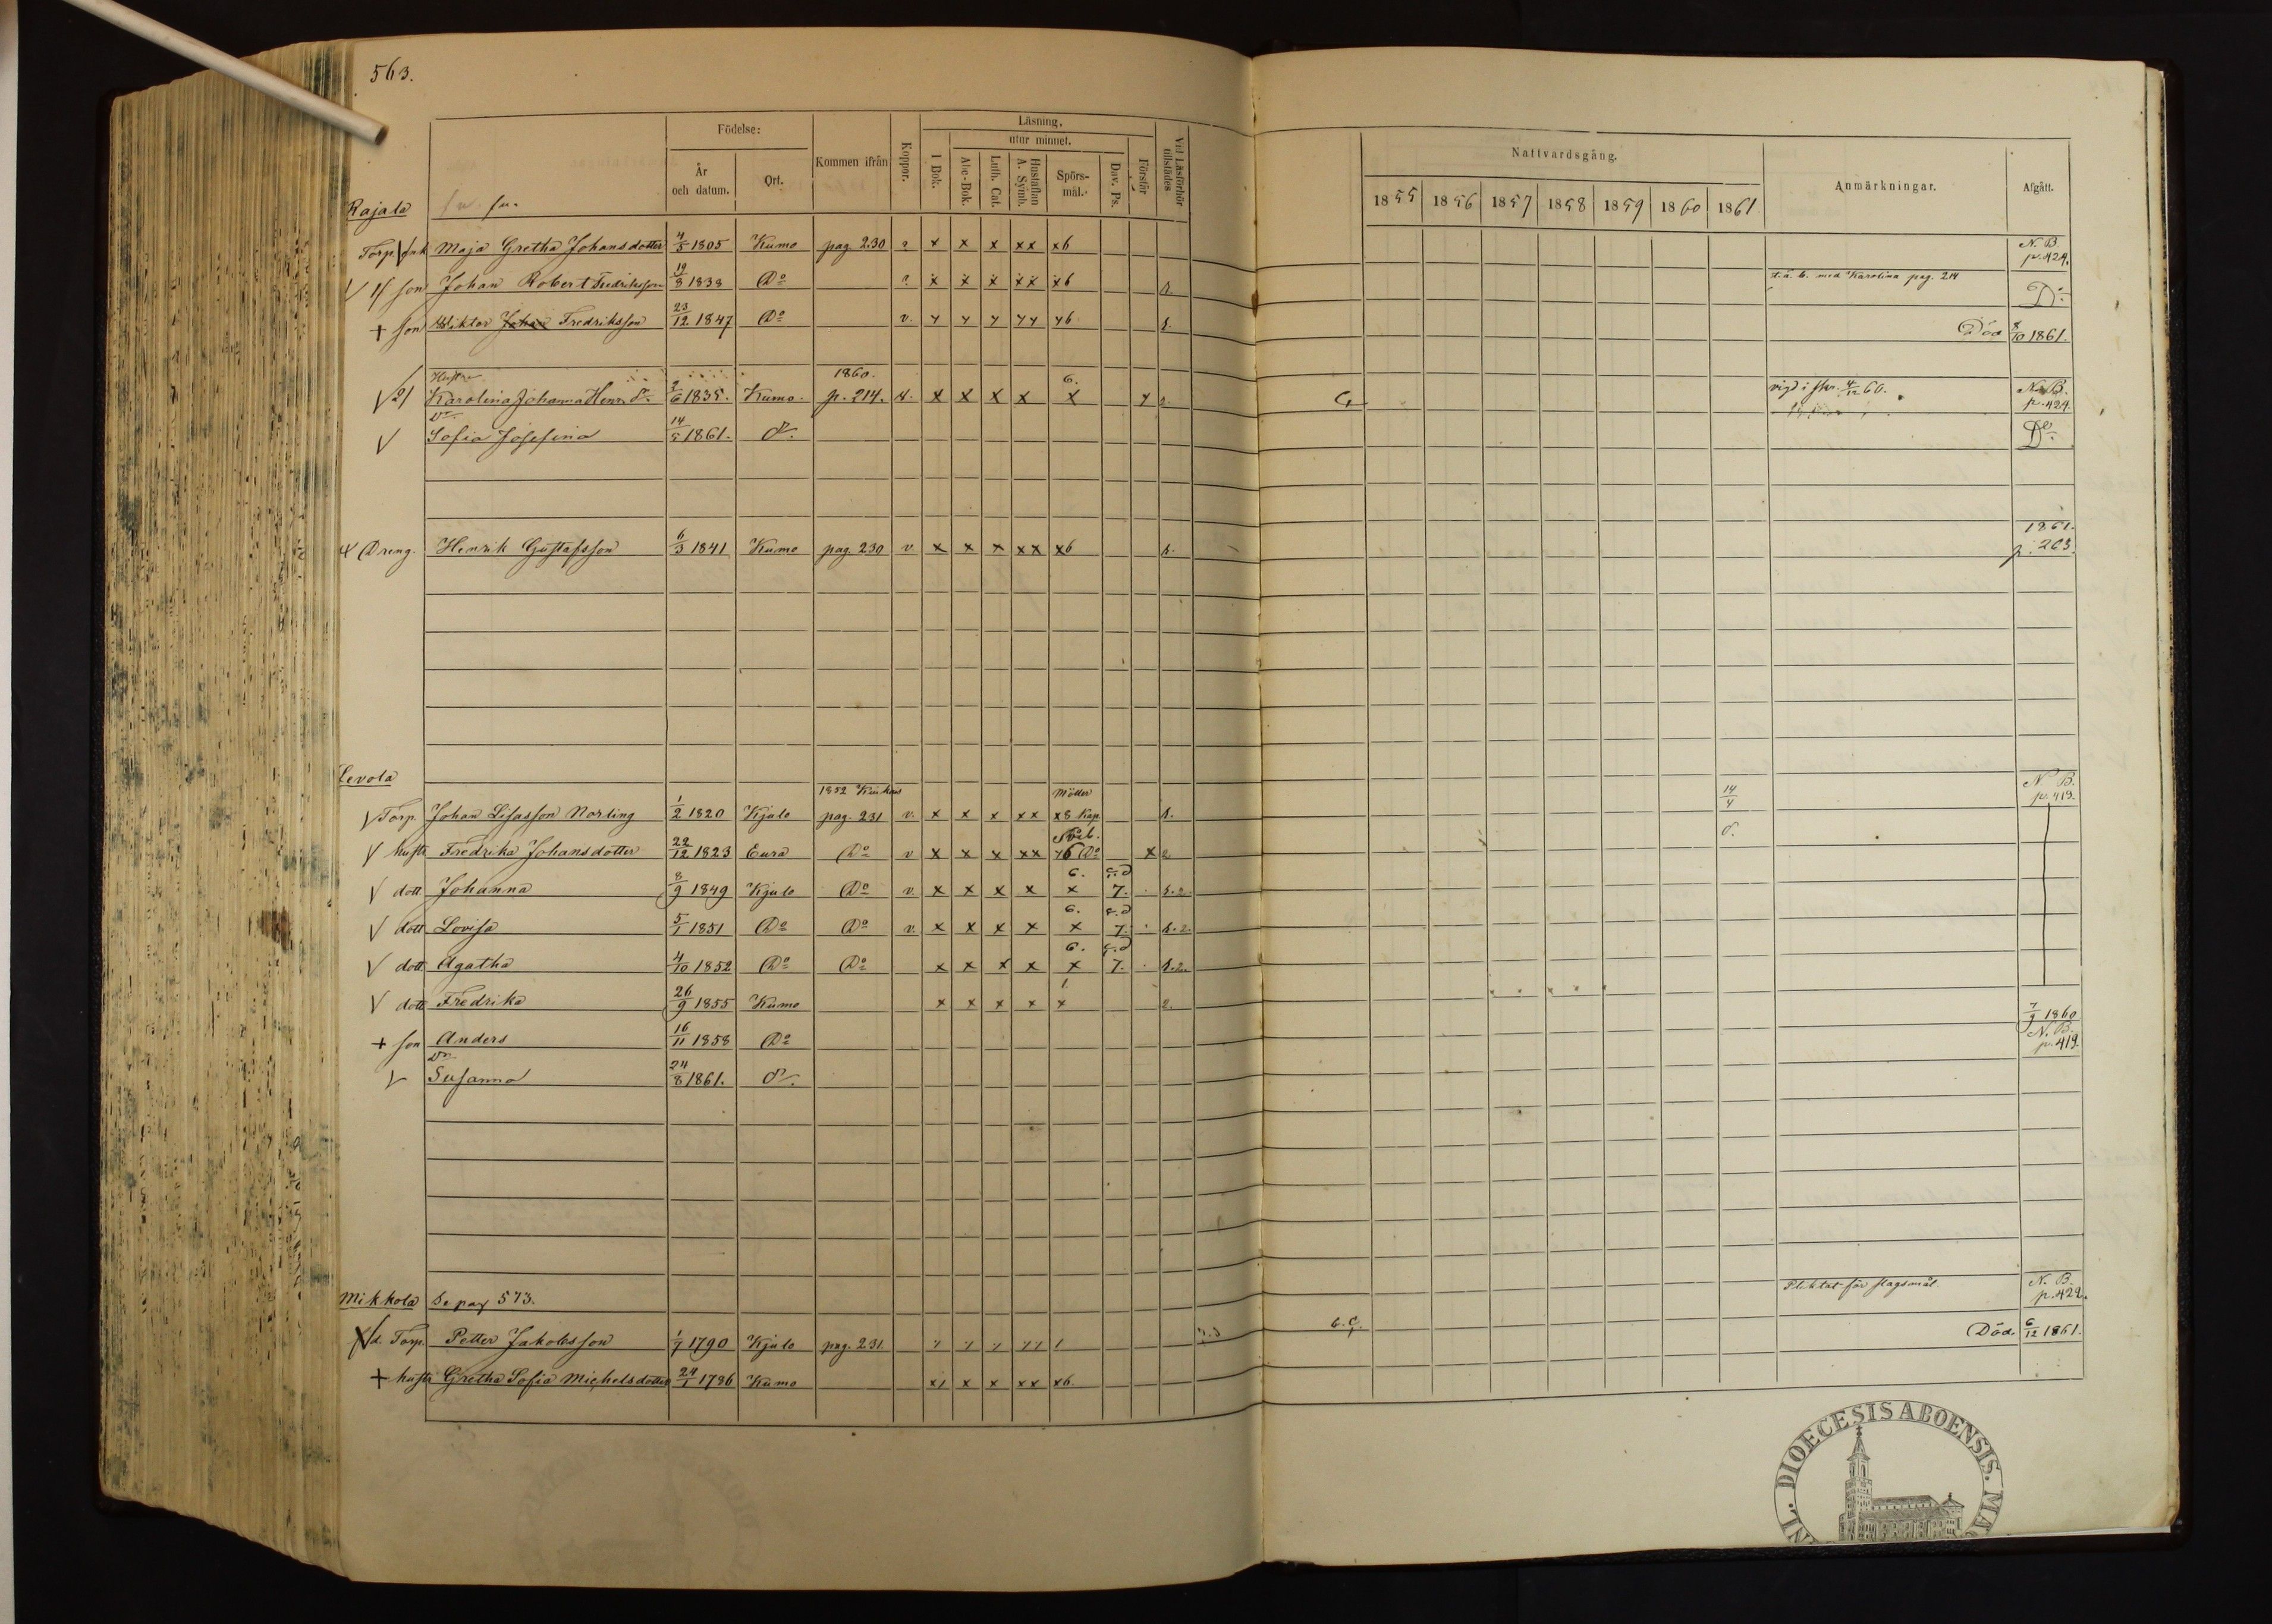 563.
Födelse:
Läsning.
utur minnet.
År och datum.
Ort.
Kommen ifrån
Koppor.
I Bok.
Abc-Bok.
Luth. Cat.
Hustaflan A. Symb.
Spörsmål.
Dav. Ps.
Förstår
Vid Läsförhör tillstädes
Nattvardsgång.
1855 1856 1857 1858 1859 1860 1861
Anmärkningar.
Afgått.
Rajala
Torp. Enk Maja Gretha Johansdotter 4/5 1805 Kumo pag. 230 x x x xx x6 N.B. p. 424.
1/ son Johan Robert Fredriksson 19/8 1838 Do x x x xx x6 med Karolina pag. 214 Do
+ son Wiktor Johan Fredriksson 23/12 1847 Do v. x x x xx x6 Död 8/10 1861.
Hustru 1860. 6.
2/ Karolina Johanna Henr. dr 2/6 1835. Kumo. p. 214. v. x x x x x vigd 4/12 60. N.B. p. 424.
Dr
Sofia Josefina 14/5 1861. Do Do
Dreng. Henrik Gustafsson 6/3 1841 Kumo pag. 230 v x x x xx x6 1861. p. 263.
Levola
1852 14/4 N.B.
Torp. Johan Lisasson Norling 1/2 1820 Kjulo pag. 231 v. x x x xx x8 Kap p. 419.
hustr Fredrika Johansdotter 22/12 1823 Eura Do v x x x xx x6 Do x 2
dott Johanna 8/9 1849 Kjulo Do v. x x x x x 7.
dott Lovisa 5/1 1851 Do Do v. x x x x x 7.
dott Agatha 4/10 1852 Do Do x x x x x 7.
dott Fredrika 26/9 1855 Kumo x x x x x 2.
+ son Anders 16/11 1858 Do 7/9 1860
Dr N.B.
Susanna 24/8 1861. Do p. 419.
Mikkola Se pag 573. Pliktat för slagsmål. N.B. p. 422.
d. Torp. Petter Jakobsson 1/7 1790 Kjulo pag. 231. Död. 6/12 1861.
+ hustr Gretha Sofia Michelsdotter 24/1 1786 Kumo x1 x x xx x6.
DIOECESIS ABOENSIS. MA